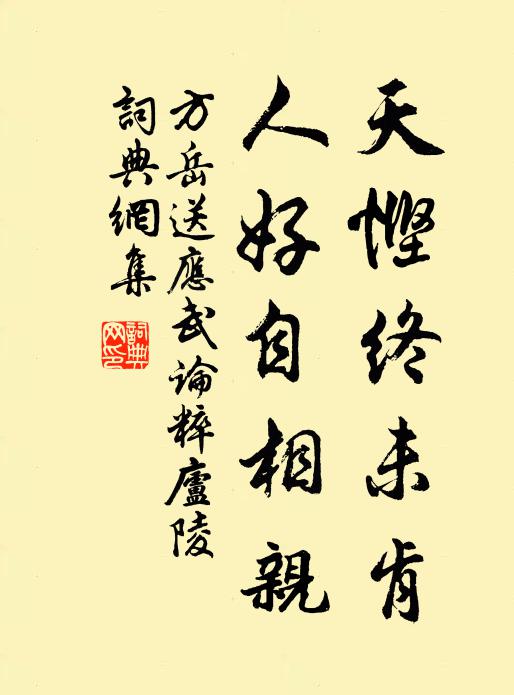 天慳終未肯
人好自相親
方岳送應武諭粹廬陵
詞典網集
詞典網印